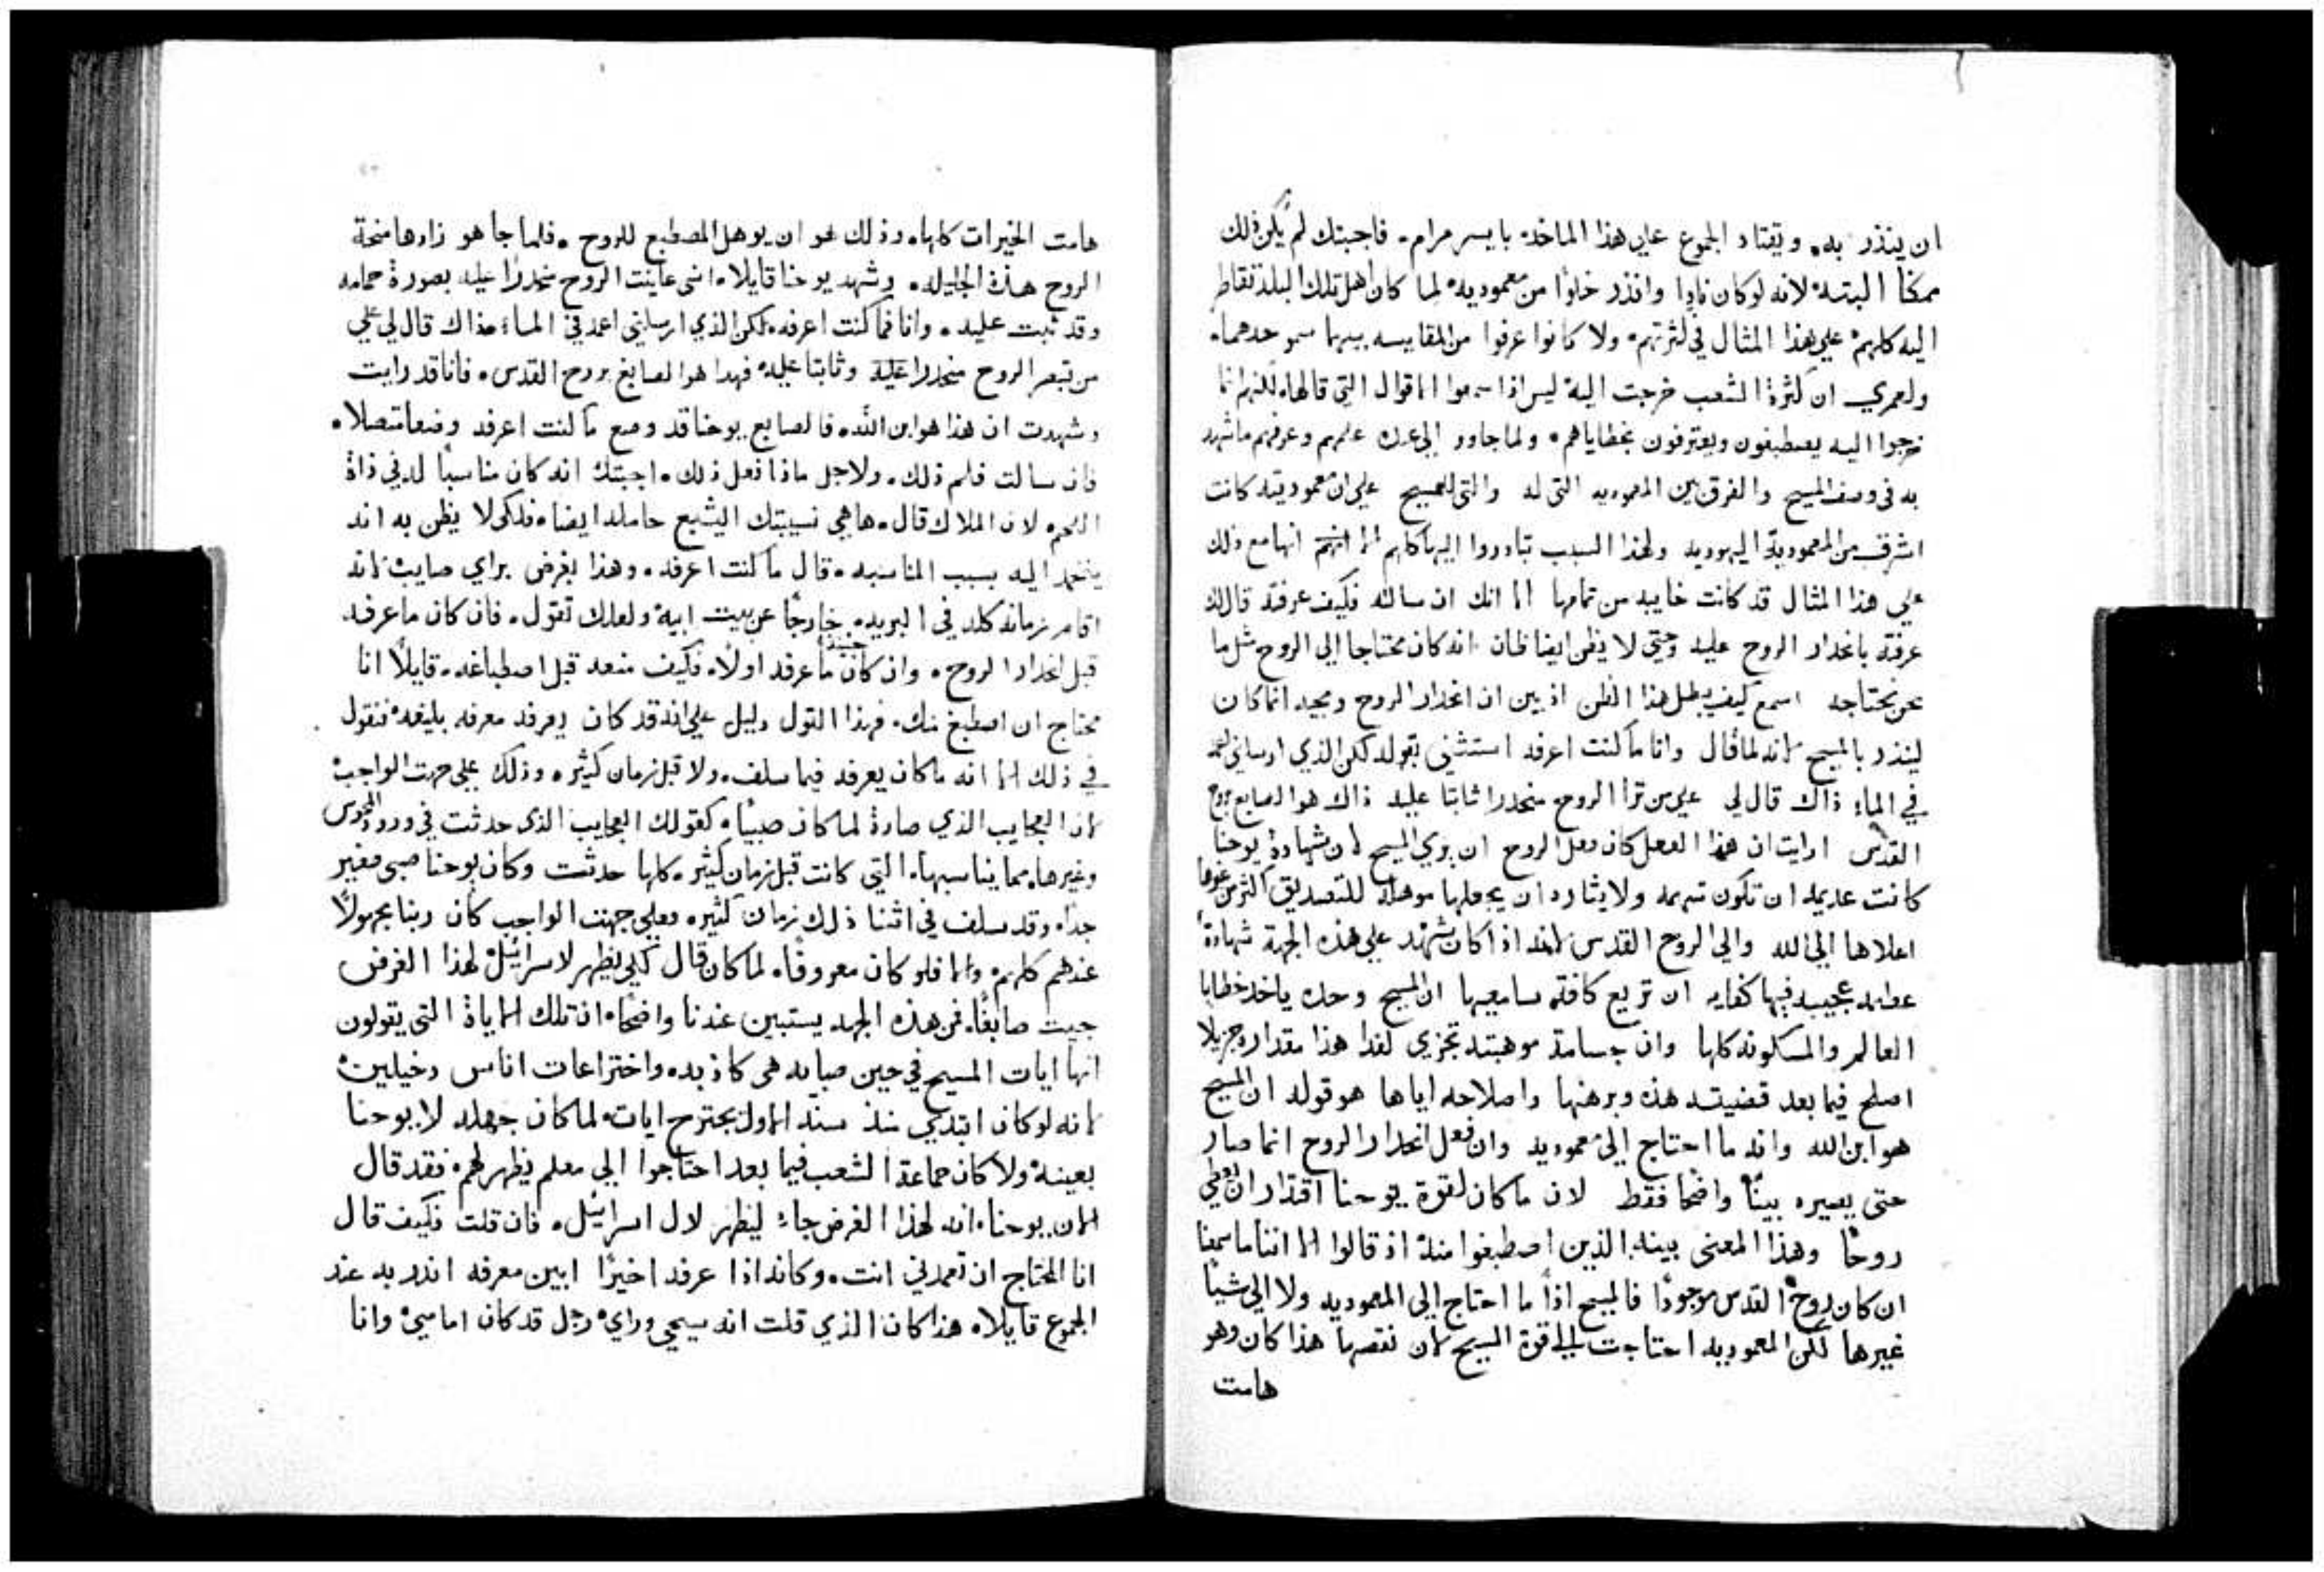 ان ينذر به. ويقتاد الجموع علي هذا الماخذ بايسر مرام. فاجبتك لم يكن ذلك
ممكنا البتة لانه لو كان نادا وانذر خلوا من معموديه لما كان اهل تلك البلد تقاطر
اليه كلهم علي هذا المثال في كثرتهم. ولا كانوا عرفوا من المقايسه بينهما سمو احدهما.
ولعمري ان كثرة الشعب خرجت اليه ليس اذا سمعوا الاقوال التي قالها. لكنهم انما
خرجوا اليه يصطبغون ويعترفون بخطاياهم. ولما جاوو الي عنده علمهم وعرفهم ما شهد
به في وصف المسيح والفرق بين المعموديه التي له والتي للمسيح علي ان معموديته كانت
اشرف من المعمودية اليهوديه ولهذا السبب تبادروا اليها كلهم الا انها مع ذلك
علي هذا المثال قد كانت خايبه من تمامها الا انك ان سالته فكيف عرفته قال لك
عرفته بانحدار الروح عليه وحتي لا يظن ايضا ظان انه كان محتاجا الي الروح مثل ما
نحن نحتاجه اسمع كيف يبطل هذا الظن اذ بين ان انحدار الروح ومجيه انما كان
لينذر بالمسيح لانه لما قال وانا ما كنت اعرفه استثني بقوله لكن الذي ارسلني لاعمد
في الماء ذاك قال لي علي من ترا الروح منحدرا ثابتا عليه ذاك هو الصابغ بروح
القدس ارايت ان هذا الفعل كان فعل الروح ان يري المسيح لان شهادة يوحنا
كانت عديمه ان تكون تهمه ولايثاره ان يجعلها موهله للتصديق اكثر من غيرها
اعلاها الي الله والي الروح القدس لانه اذا كان شهد علي هذه الجهة شهادة
عظيمه عجيبه فيها كفايه ان تريع كافة سامعيها ان المسيح وحده ياخذ خطايا
العالم والمسكونه كلها وان جسامة موهبته تجزي لفدا هذا مقداره جزيلا
اصلح فيما بعد قضيته هذه وبرهنها واصلاحه اياها هو قوله ان المسيح
هو ابن الله وانه ما احتاج الي معموديه وان فعل انحدار الروح انما صار
حتي يصيره بينا واضحا فقط لان ما كان لقوة يوحنا اقتدار ان تعطي
روحا وهذا المعني بينه الذين اصطبغوا منه اذ قالوا الا اننا ما سمعنا
ان كان روح القدس موجودا فالمسيح اذا ما احتاج الي المعموديه ولا الي شيا
غيرها لكن المعموديه احتاجت الي قوة المسيح لان نقصها هذا كان وهو
هامت
هامت الخيرات كلها. وذلك هو ان يوهل المصطبغ للروح. فلما جا هو زادها منحة
الروح هذه الجليله. وشهد يوحنا قايلا. انني عاينت الروح منحدرا عليه بصورة حمامه
وقد ثبت عليه. وانا فما كنت اعرفه. لكن الذي ارسلني اعمد في الماء هذاك قال لي علي
من تبصر الروح منحدرا عليه وثابتا عليه فهدا هو الصابغ بروح القدس. فانا قد رايت
وشهدت ان هذا هو ابن الله. فالصابغ يوحنا قد وضع ما كنت اعرفه وضعا متصلا.
فان سالت فلم ذلك. ولاجل ماذا فعل ذلك. اجبتك انه كان مناسبا له في ذاة
اللحم. لان الملاك قال. هاهي نسيبتك اليشبع حامله ايضا. فلكي لا يظن به انه
اليه بسبب المناسبه. قال ما كنت اعرفه. وهذا بفرض براي صايب لانه
اقام زمانه كله في البريه. خارجا عن بيت ابيه ولعلك تقول. فان كان ما عرفه
قبل انحدار الروح. وان كان حينيذ ما عرفه اولا. فكيف منعه قبل اصطباغه. قايلا انا
محتاج ان اصطبغ منك. فهذا القول دليل علي انه قد كان يعرفه معرفه بليغه فنقول
في ذلك الا انه ما كان يعرفه فيما سلف. ولا قبل زمان كثير. وذلك علي جهت الواجب
لان العجايب الذي صارة لما كان صبيا. كقولك العجايب الذي حدثت في ورود المجوس
وغيرها. مما يناسبها. التي كانت قبل زمان كثير. كلها حدثت وكان يوحنا صبي صغير
جدا. وقد سلف في اثنا ذلك زمان كثير. فعلي جهت الواجب كان ربنا مجهولا
عندهم كلهم. والا فلو كان معروفا. لما كان قال لكي يظهر لاسرائيل لهذا الغرض
جيت صابغا. فمن هذه الجهه يستبين عندنا واضحا. ان تلك الاياة التي يقولون
انها ايات المسيح في حين صباه هي كاذبه. واختراعات اناس دخيلين
لانه لو كان ابتدي منذ سنه الاول يجترح ايات. لما كان جهله لا يوحنا
بعينه ولا كان جماعة الشعب فيما بعد احتاجوا الي معلم يظهر لهم. فقد قال
الان يوحنا. انه لهذا الغرض جاء ليظهر لال اسرائيل. فان قلت فكيف قال
انا المحتاج ان تعمدني انت. وكانه اذا عرفه اخيرا ابين معرفه انذر به عند
الجموع قايلا. هذا كان الذي قلت انه سيجي وراي رجل قد كان امامي وانا